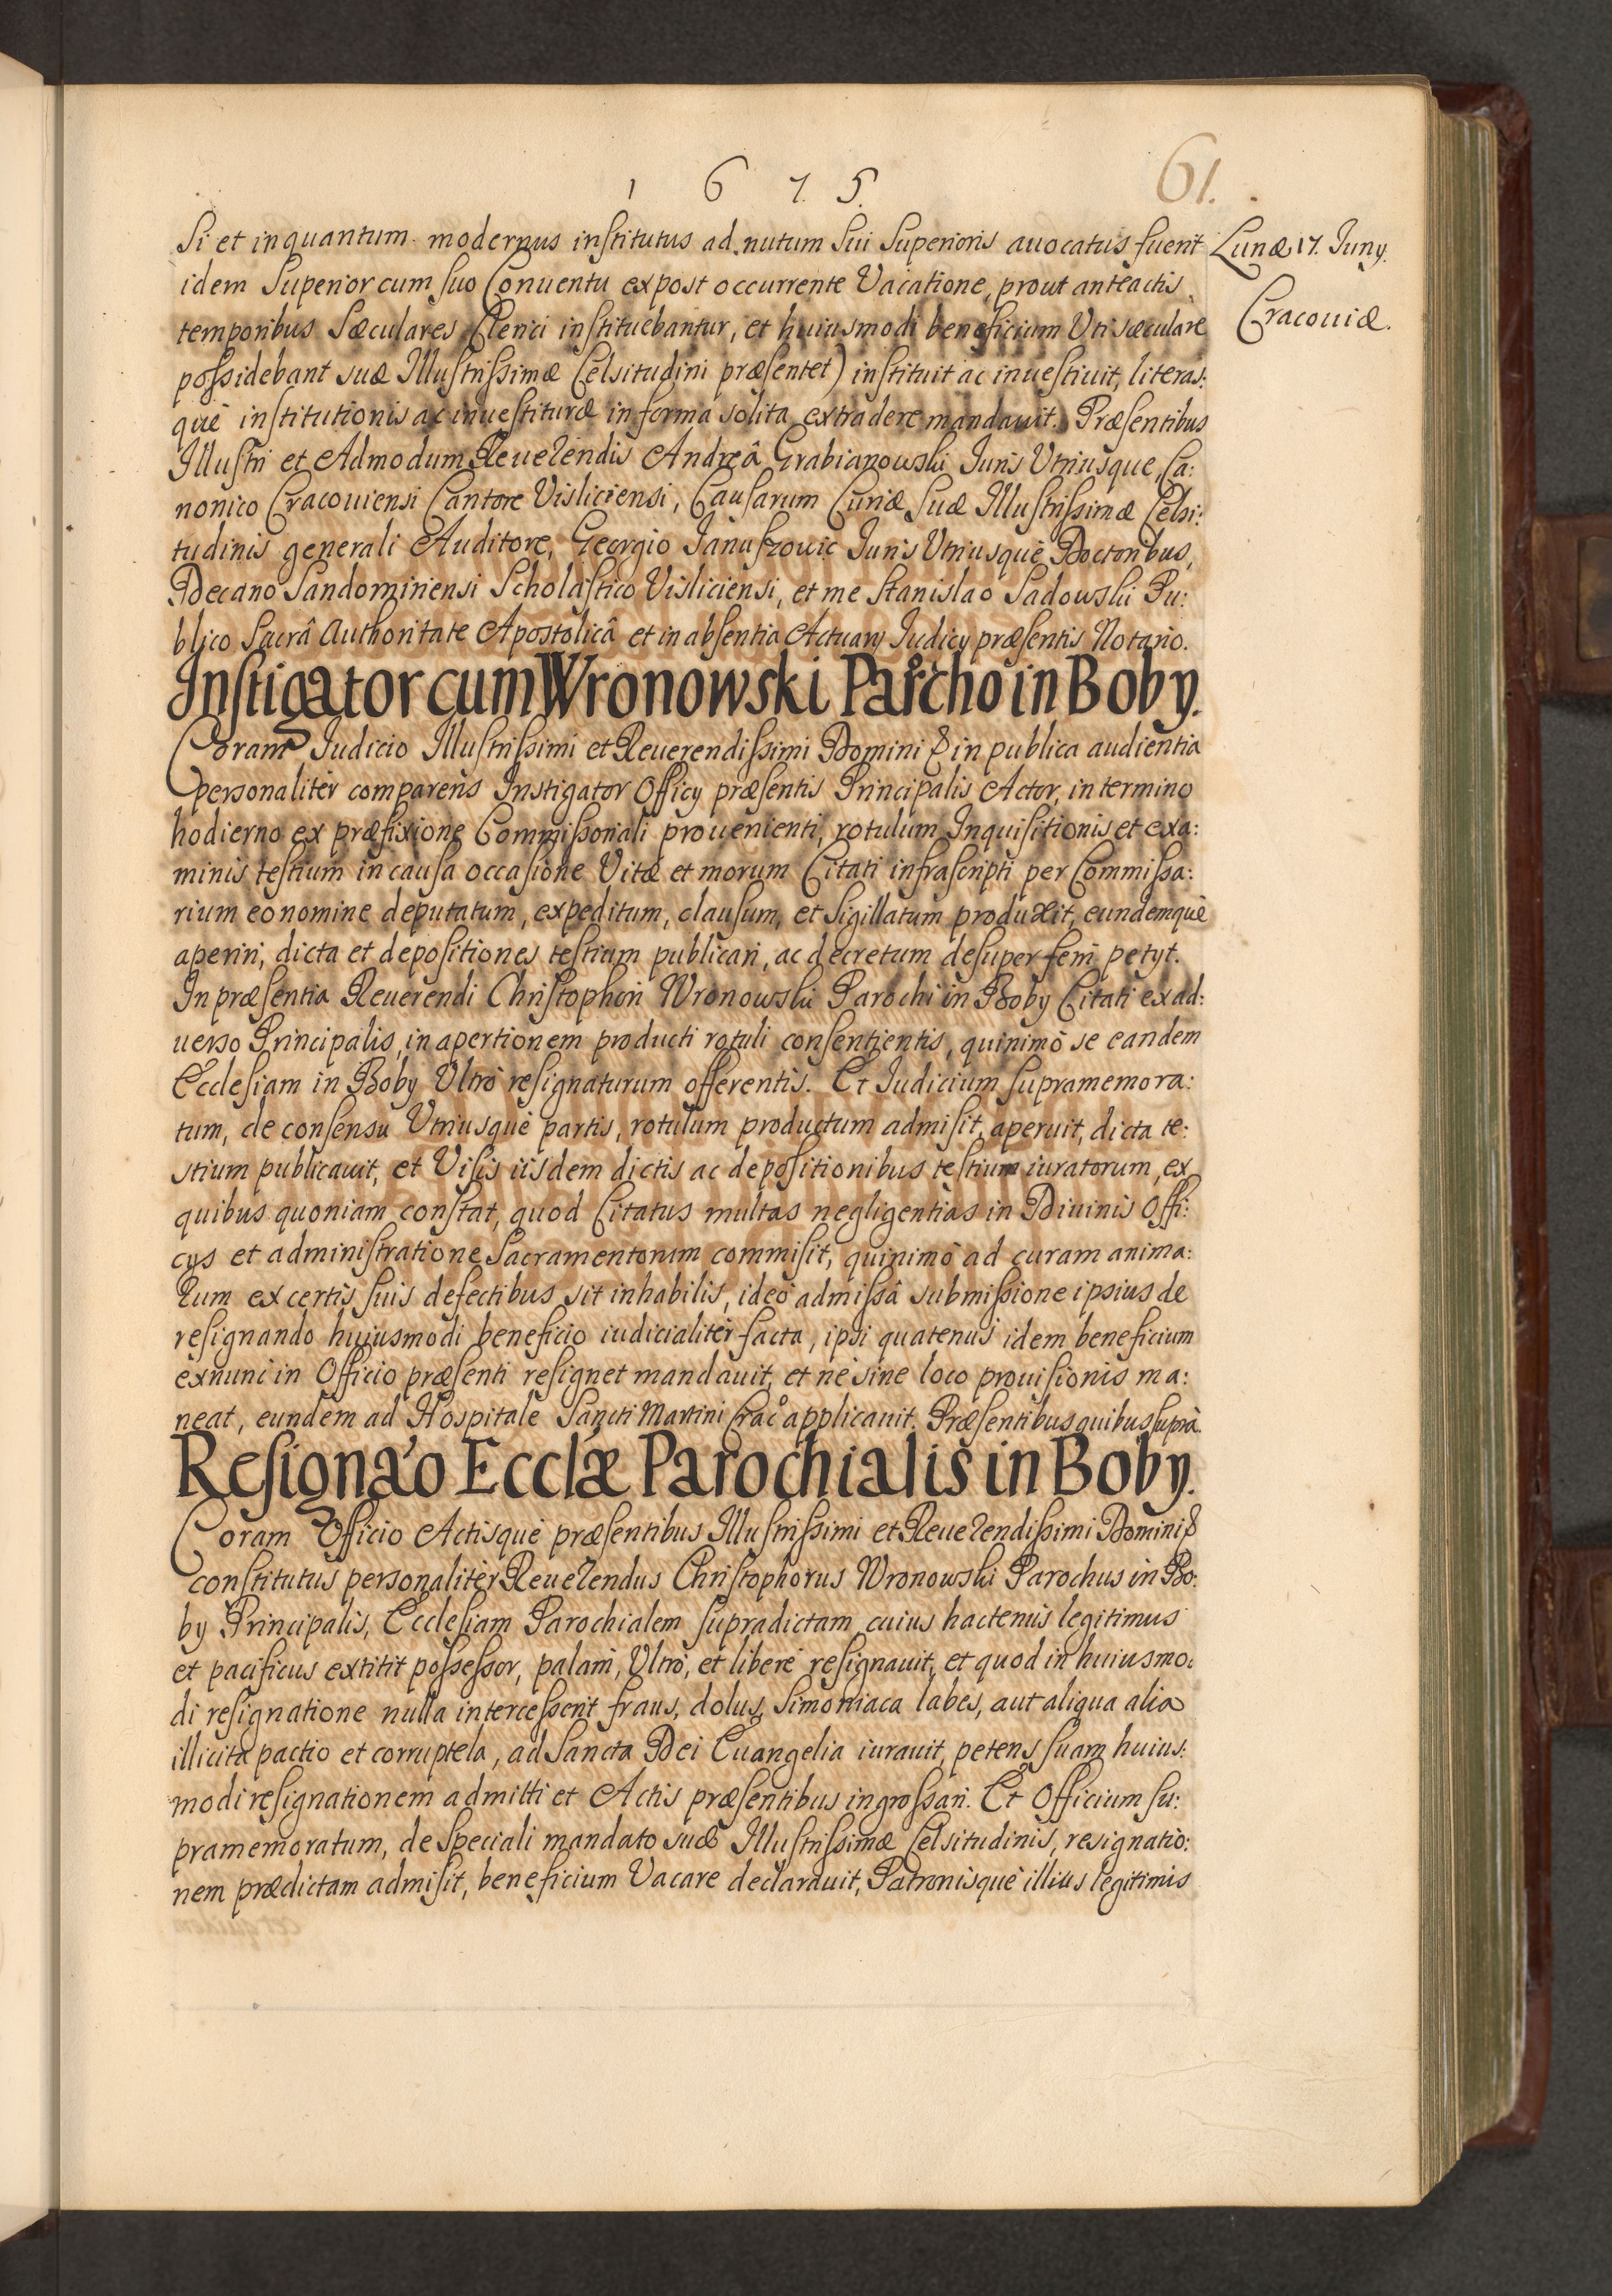 1 6 7. 5.
61.
Si et inquantum modernus institutus ad nutum sui Superioris auocatus fuerit
Lunæ 17. Iuny.
idem Superior cum suo Conuentu expost occurrente Vacatione, prout anteactis
Cracouiæ.
temporibus Sæculares Clerici instituebantur, et huiusmodi beneficium Uti sæculare
possidebant suæ Illustrissimæ Celsitudini præsentet) instituit ac inuestiuit, literas:
què institutionis ac inuestituræ in forma solita extradere mandauit. Præsentibus
Illustri et Admodum Reuerendis Andreâ Grabianowski Iuris Utriusque, Ca:
nonico Cracouiensi Cantore Visliciensi, Causarum Curiæ Suæ Illustrissimæ Celsi:
tudinis generali Auditore, Georgio Ianuszouic Iuris Utriusquè Doctoribus,
Decano Sandomiriensi Scholastico Visliciensi, et me Stanislao Sadowski Pu:
blico Sacrâ Authoritate Apostolicâ et in absentia Actuarij Iudicij præsentis Notario.
Instigator cum Wronowski Parcho in Boby.
Coram Iudicio Illustrissimi et Reuerendissimi Domini & in publica audientia
personalitèr comparens Instigator Officij præsentis Principalis Actor, in termino
hodierno ex præfixione Commissoriali prouenienti, rotulum Inquisitionis et exa:
minis testium in causa occasione Vitæ et morum Citati infrascripti per Commissa:
rium eo nomine deputatum, expeditum, clausum, et Sigillatum produxit, eundemquè
aperiri, dicta et depositiones testium publicari, ac decretum desuper ferri petijt.
In præsentia Reuerendi Christophori Wronowski Parochi in Boby Citati ex ad:
uerso Principalis, in apertionem producti rotuli consentientis, quinimò se eandem
Ecclesiam in Boby Ultrò resignaturum offerentis. Et Iudicium supramemora:
tum, de consensu Utriusquè partis, rotulum productum admisit, aperuit, dicta te:
stium publicauit, et Visis iisdem dictis ac depositionibus testium iuratorum, ex
quibus quoniam constat, quod Citatus multas negligentias in Diuinis Offi:
cys et administratione Sacramentorum commisit, quinimò ad curam anima:
rum ex certis suis defectibus sit inhabilis, ideò admissâ submissione ipsius de
resignando huiusmodi beneficio iudicialitèr facta, ipsi quatenus idem beneficium
exnunc in Officio præsenti resignet mandauit, et nè sine loco prouisionis ma:
neat, eundem ad Hospitale Sancti Martini Crac° applicauit. Præsentibus quibus suprà.
Resignaō Ecclæ Parochialis in Boby.
Coram Officio Actisquè præsentibus Illustrissimi et Reuerendissimi Domini &
constitutus personalitèr Reuerendus Christophorus Wronowski Parochus in Bo:
by Principalis, Ecclesiam Parochialem supradictam, cuius hactenùs legitimus
et pacificus extitit possessor, palàm, Ultrò, et liberè resignauit, et quod in huiusmo:
di resignatione nulla intercesserit fraus, dolus, Simoniaca labes, aut aliqua alia
illicita pactio et corruptela, ad Sancta Dei Euangelia iurauit, petens suam huius:
modi resignationem admitti et Actis præsentibus ingrossari. Et Officium su:
pramemoratum, de speciali mandato suæ Illustrissimæ Celsitudinis, resignatio:
nem prædictam admisit, beneficium Vacare declarauit, Patronisquè illius legitimis